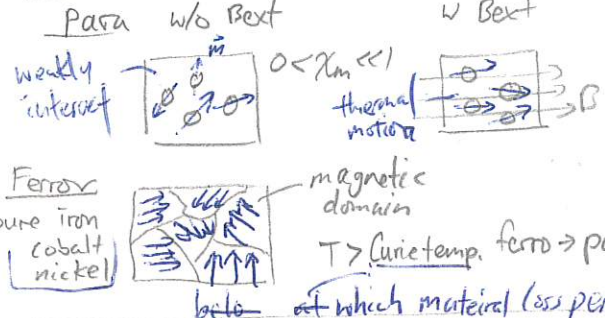 Para w/o Bext w Bext
m
weakly
interact
0 < χm << 1
thermal
motion
B
Ferror
pure iron
cobalt
nickel
magnetic
domain
T > Curie temp. ferro → pa
belo at which mateiral loss per